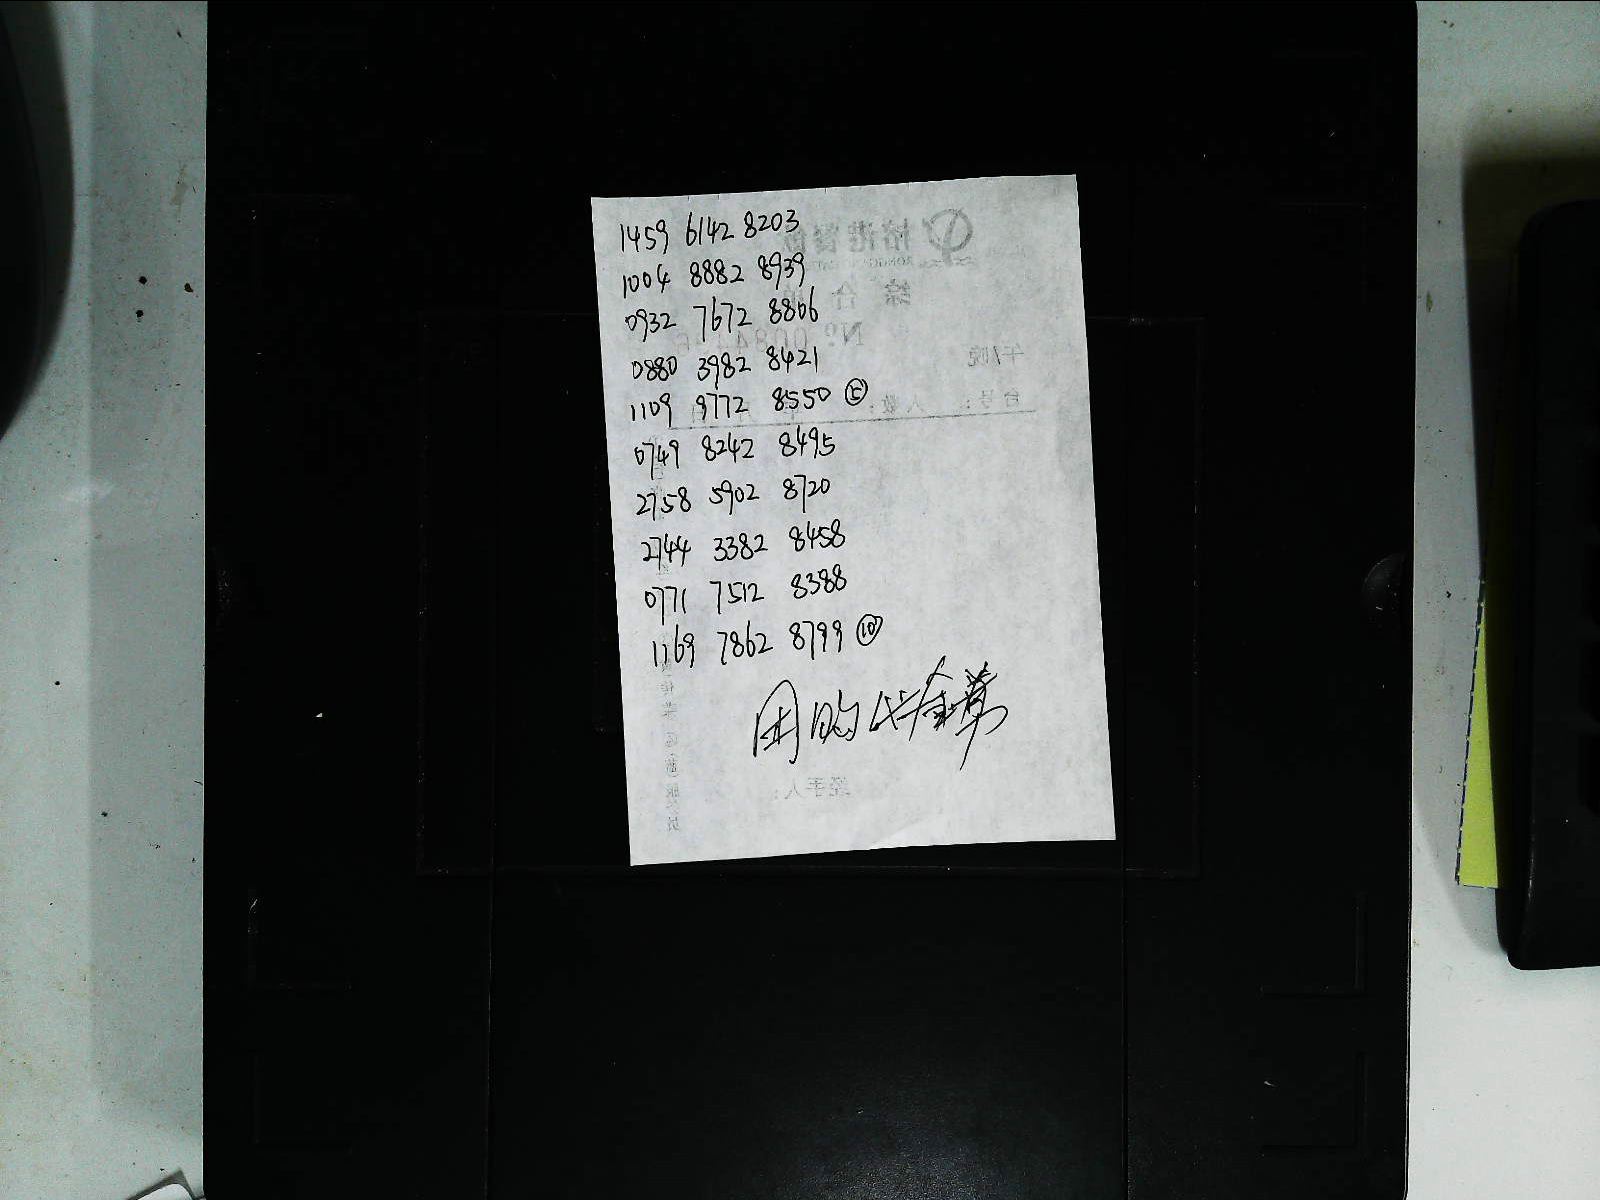 1459 6142 8203
1004 8882 8939
0932 7672 8806
0880 3982 8421
1109 9772 8550 ⑤
0749 8242 8495
2758 5902 8720
2744 3382 8458
0771 7512 8388
1169 7862 8799 ⑩
团购代金券
综合
No
午/晚
台号： 人数：
经手人：